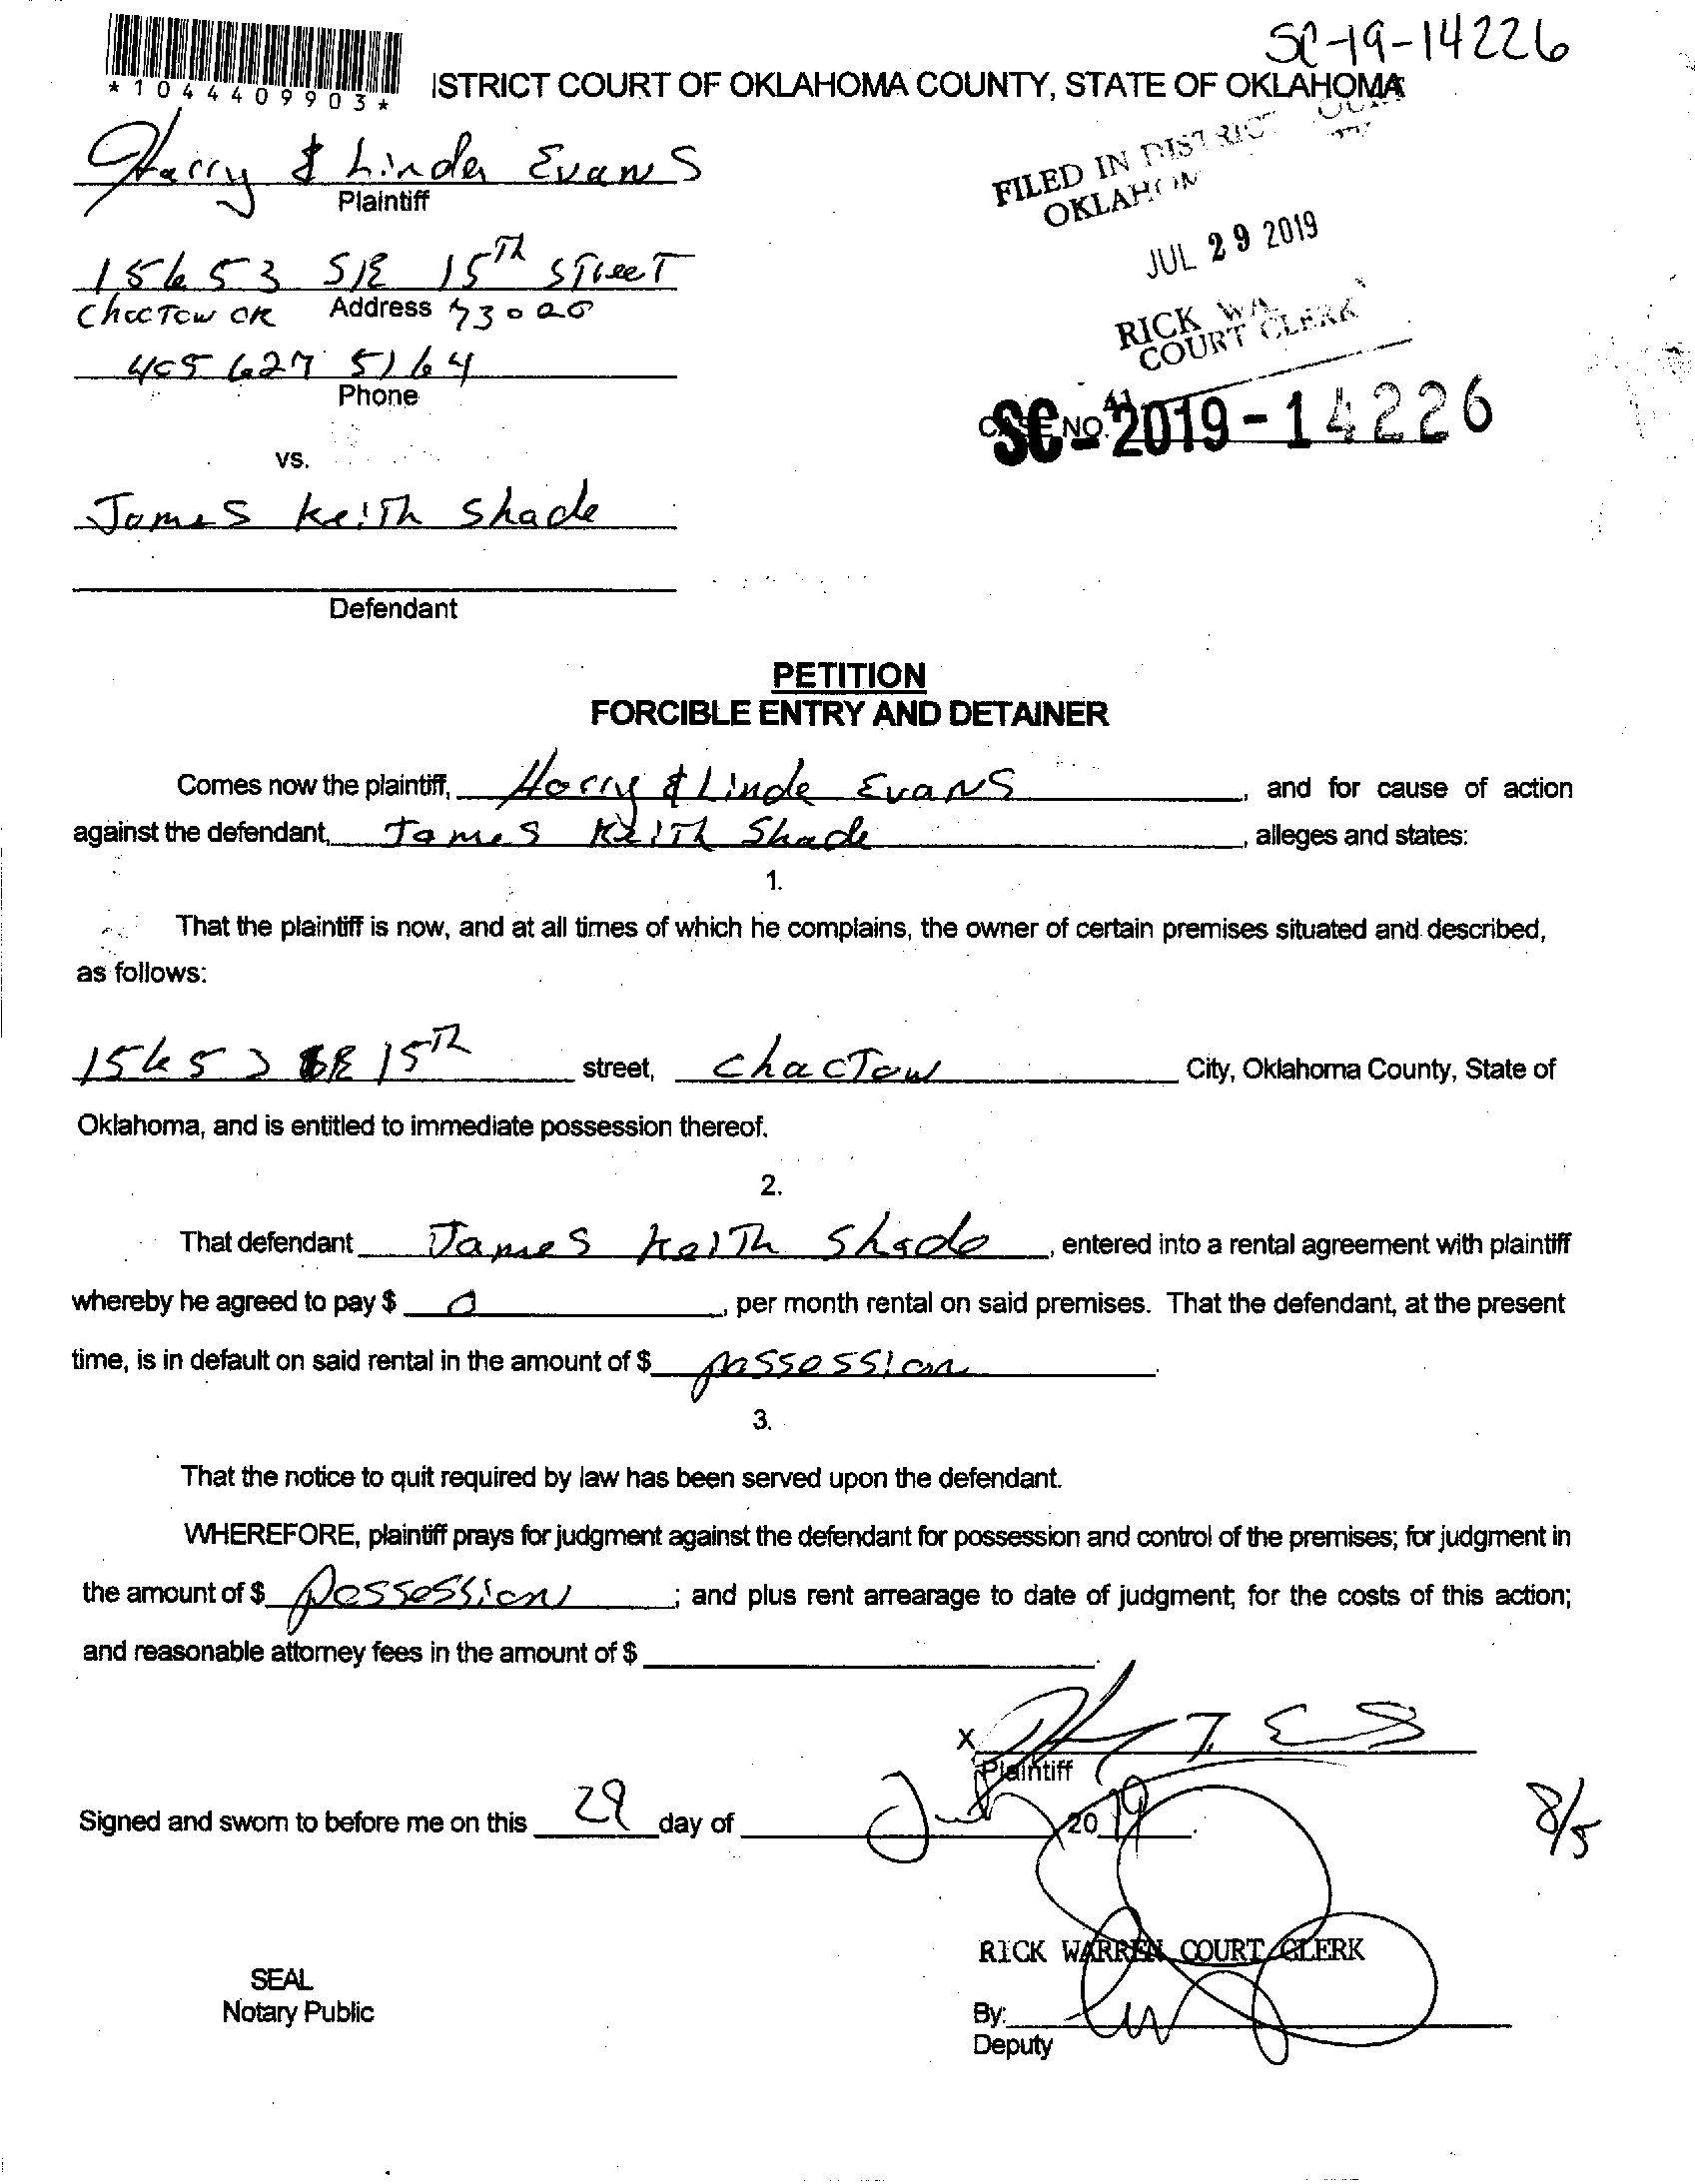 SC-19-14226
*1044409903*
ISTRICT COURT OF OKLAHOMA COUNTY, STATE OF OKLAHOMA
Harry & Linda Evans
Plaintiff
FILED IN DISTRICT
OKLAHOM
15653 SE 15Th STreeT
JUL 29 2019
Choctow OK Address 73020
RICK WA
COURT CLERK
405 627 5164
Phone
SC-2019-14226
NO.
vs.
James Keith Shade
Defendant
PETITION
FORCIBLE ENTRY AND DETAINER
Comes now the plaintiff, Harry & Linda Evans, and for cause of action
against the defendant, James Keith Shade, alleges and states:
1.
That the plaintiff is now, and at all times of which he complains, the owner of certain premises situated and described,
as follows:
15653 SE 15Th street, choctow City, Oklahoma County, State of
Oklahoma, and is entitled to immediate possession thereof.
2.
That defendant James Keith Shade, entered into a rental agreement with plaintiff
whereby he agreed to pay $ 0, per month rental on said premises. That the defendant, at the present
time, is in default on said rental in the amount of $ possession.
3.
That the notice to quit required by law has been served upon the defendant.
WHEREFORE, plaintiff prays for judgment against the defendant for possession and control of the premises; for judgment in
the amount of $ Possession; and plus rent arrearage to date of judgment; for the costs of this action;
and reasonable attorney fees in the amount of $
X
Plaintiff
Signed and sworn to before me on this 29 day of July 2019.
8/5
RICK WARREN COURT CLERK
SEAL
Notary Public
By:
Deputy